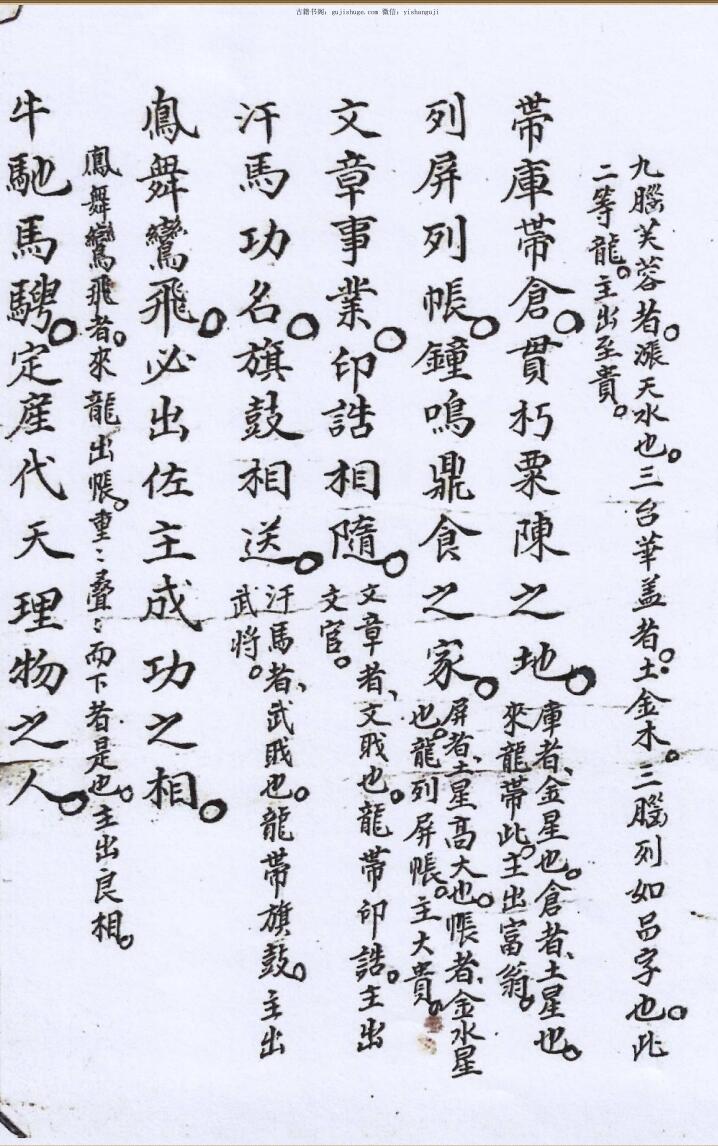 古籍书阁：gujishuge.com 微信：yishanguji
九腦芙蓉者。漲天水也。三台華盖者。土金木。三腦列如品字也。此
二等龍。主出至貴。
帶庫帶倉。貫朽粟陳之地。
庫者、金星也。倉者、土星也。
來龍帶此。主出富翁。
列屏列帳。鐘鳴鼎食之家。
屏者、土星高大也。帳者、金水星
也。龍列屏帳。主大貴。
文章事業。印誥相隨。
文章者、文戝也。龍帶印誥。主出
文官。
汗馬功名。旗鼓相送。
汗馬者、武戝也。龍帶旗鼓。主出
武将。
鳳舞鸞飛。必出佐主成功之相。
鳳舞鸞飛者。來龍出帳。重〻叠〻而下者是也。主出良相。
牛馳馬騁。定産代天理物之人。